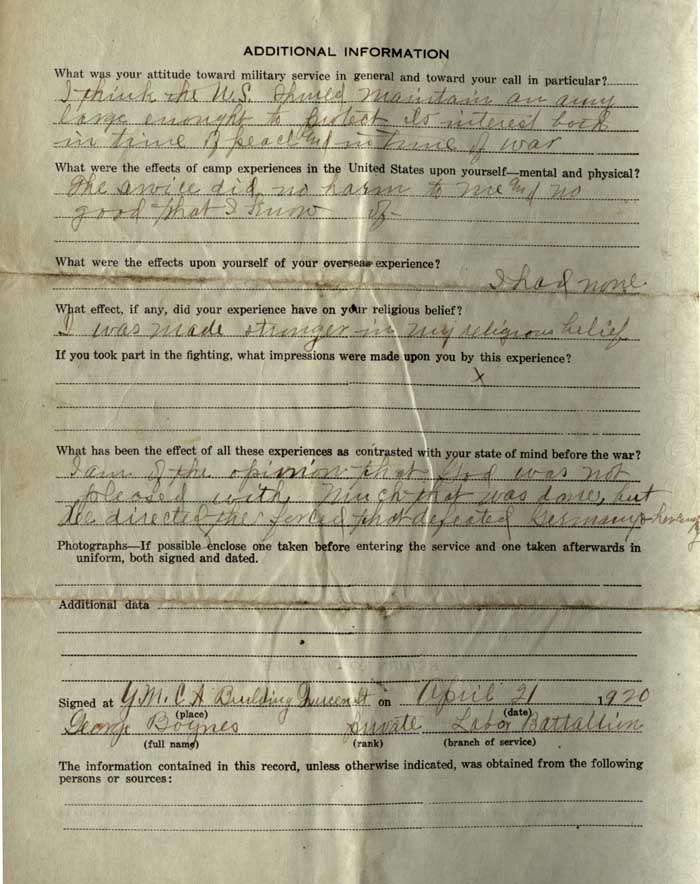 ADDITIONAL INFORMATION
What was your attitude toward military service in general and toward your call in particular?
I think the U.S. should maintain an army
large enought to protect its interest both
in time of peace and in time of war
What were the effects of camp experiences in the United States upon yourself—mental and physical?
The service did no harm to me and no
good that I know of
What were the effects upon yourself of your overseas experience?
I had none
What effect, if any, did your experience have on your religious belief?
I was made stronger in my religious belief
If you took part in the fighting, what impressions were made upon you by this experience?
x
What has been the effect of all these experiences as contrasted with your state of mind before the war?
I am of the opinion that God was not
pleased with much that was done, but
He directed the forces that defeated Germany
Photographs—If possible enclose one taken before entering the service and one taken afterwards in
uniform, both signed and dated.
Additional data
Signed at Y.M.C.A Building Queen St on April 21 1920
(place) (date)
George Boynes Private Labor Battallion
(full name) (rank) (branch of service)
The information contained in this record, unless otherwise indicated, was obtained from the following
persons or sources: